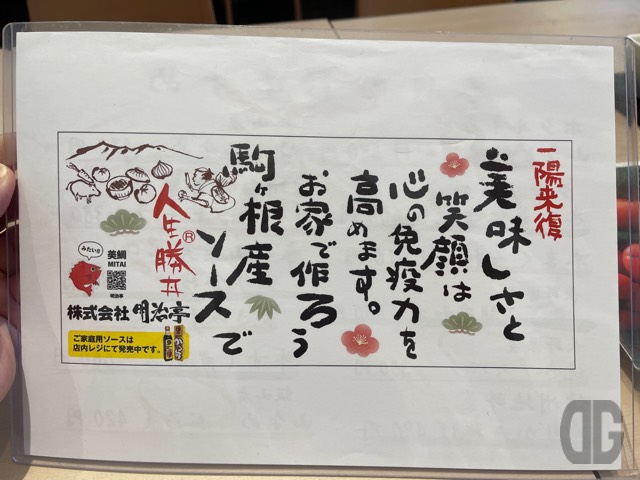 一陽来復
美味しさと
笑顔は
心の免疫力を
高めます。
お家で作ろう
駒ヶ根産
ソースで
人生勝丼®
みたい!!
美鯛
MITAI
明治亭
株式会社 明治亭
ご家庭用ソースは
店内レジにて発売中です。
DG